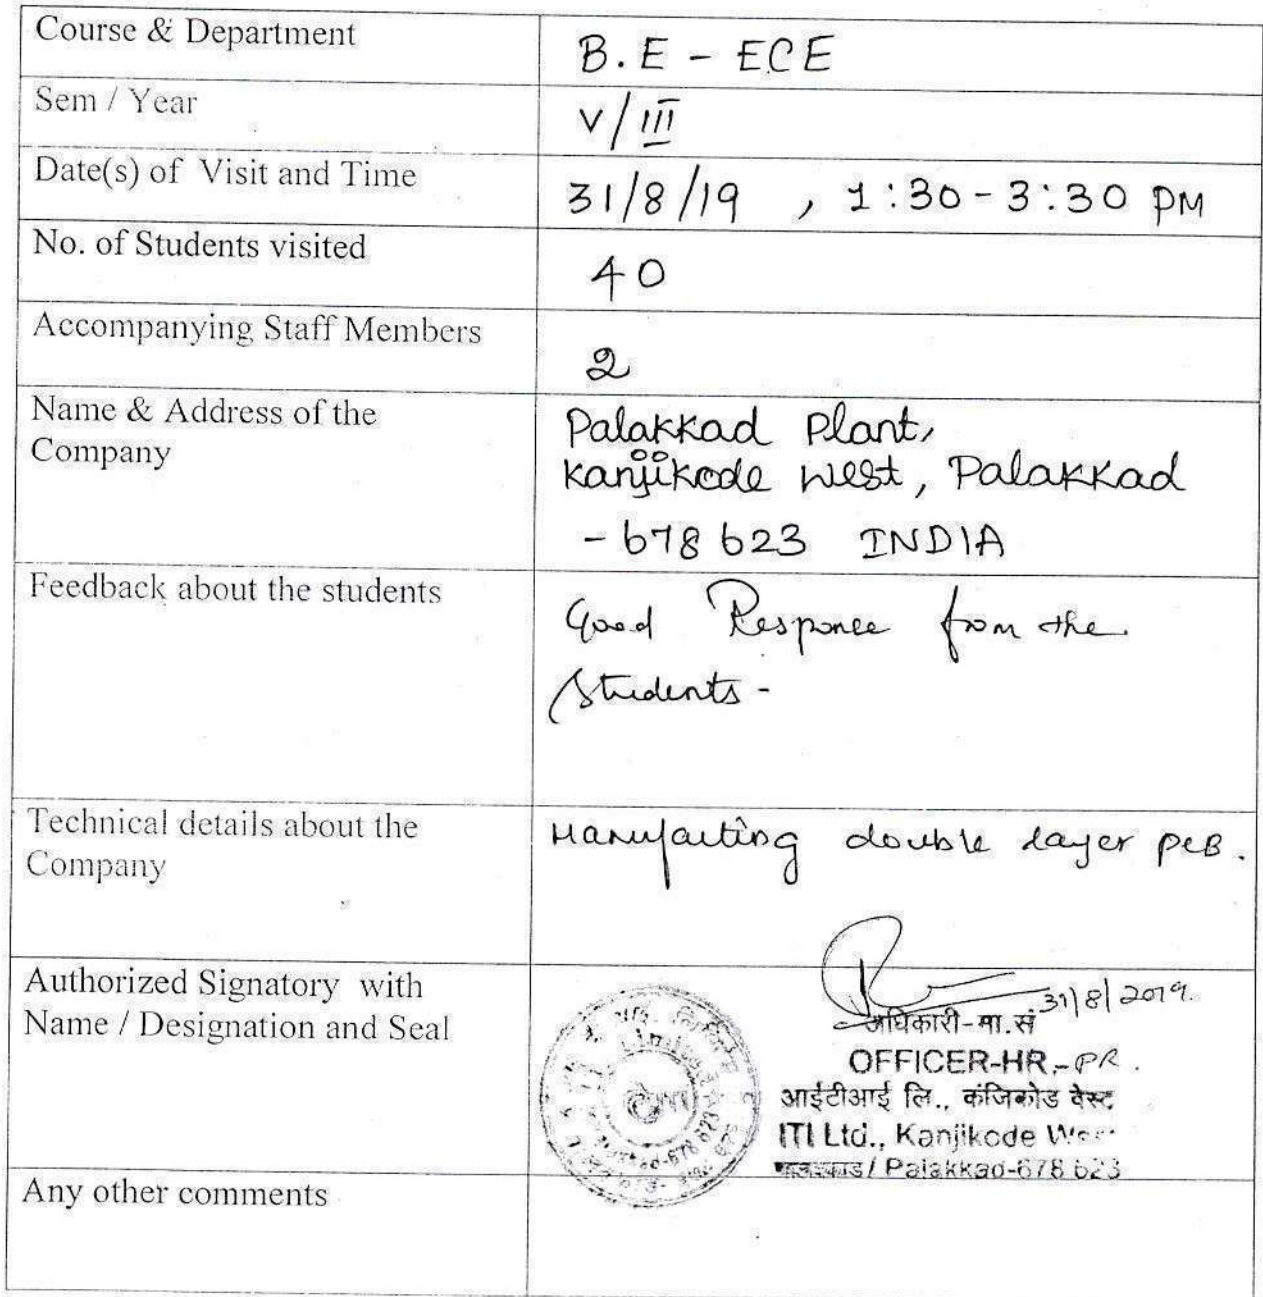 Course & Department
B.E - ECE
Sem / Year
V/III
Date(s) of Visit and Time
31/8/19 , 1:30-3:30 PM
No. of Students visited
40
Accompanying Staff Members
2
Name & Address of the
Company
Palakkad Plant,
Kanjikode west, Palakkad
- 678 623 INDIA
Feedback about the students
Good Response from the
Students -
Technical details about the
Company
Manufacting double layer PCB.
Authorized Signatory with
Name / Designation and Seal
31/8/2019.
अधिकारी-मा.सं
OFFICER-HR-PR.
आईटीआई लि., कंजिकोड वेस्ट
ITI Ltd., Kanjikode West
/ Palakkad-678 623
Limited
Any other comments